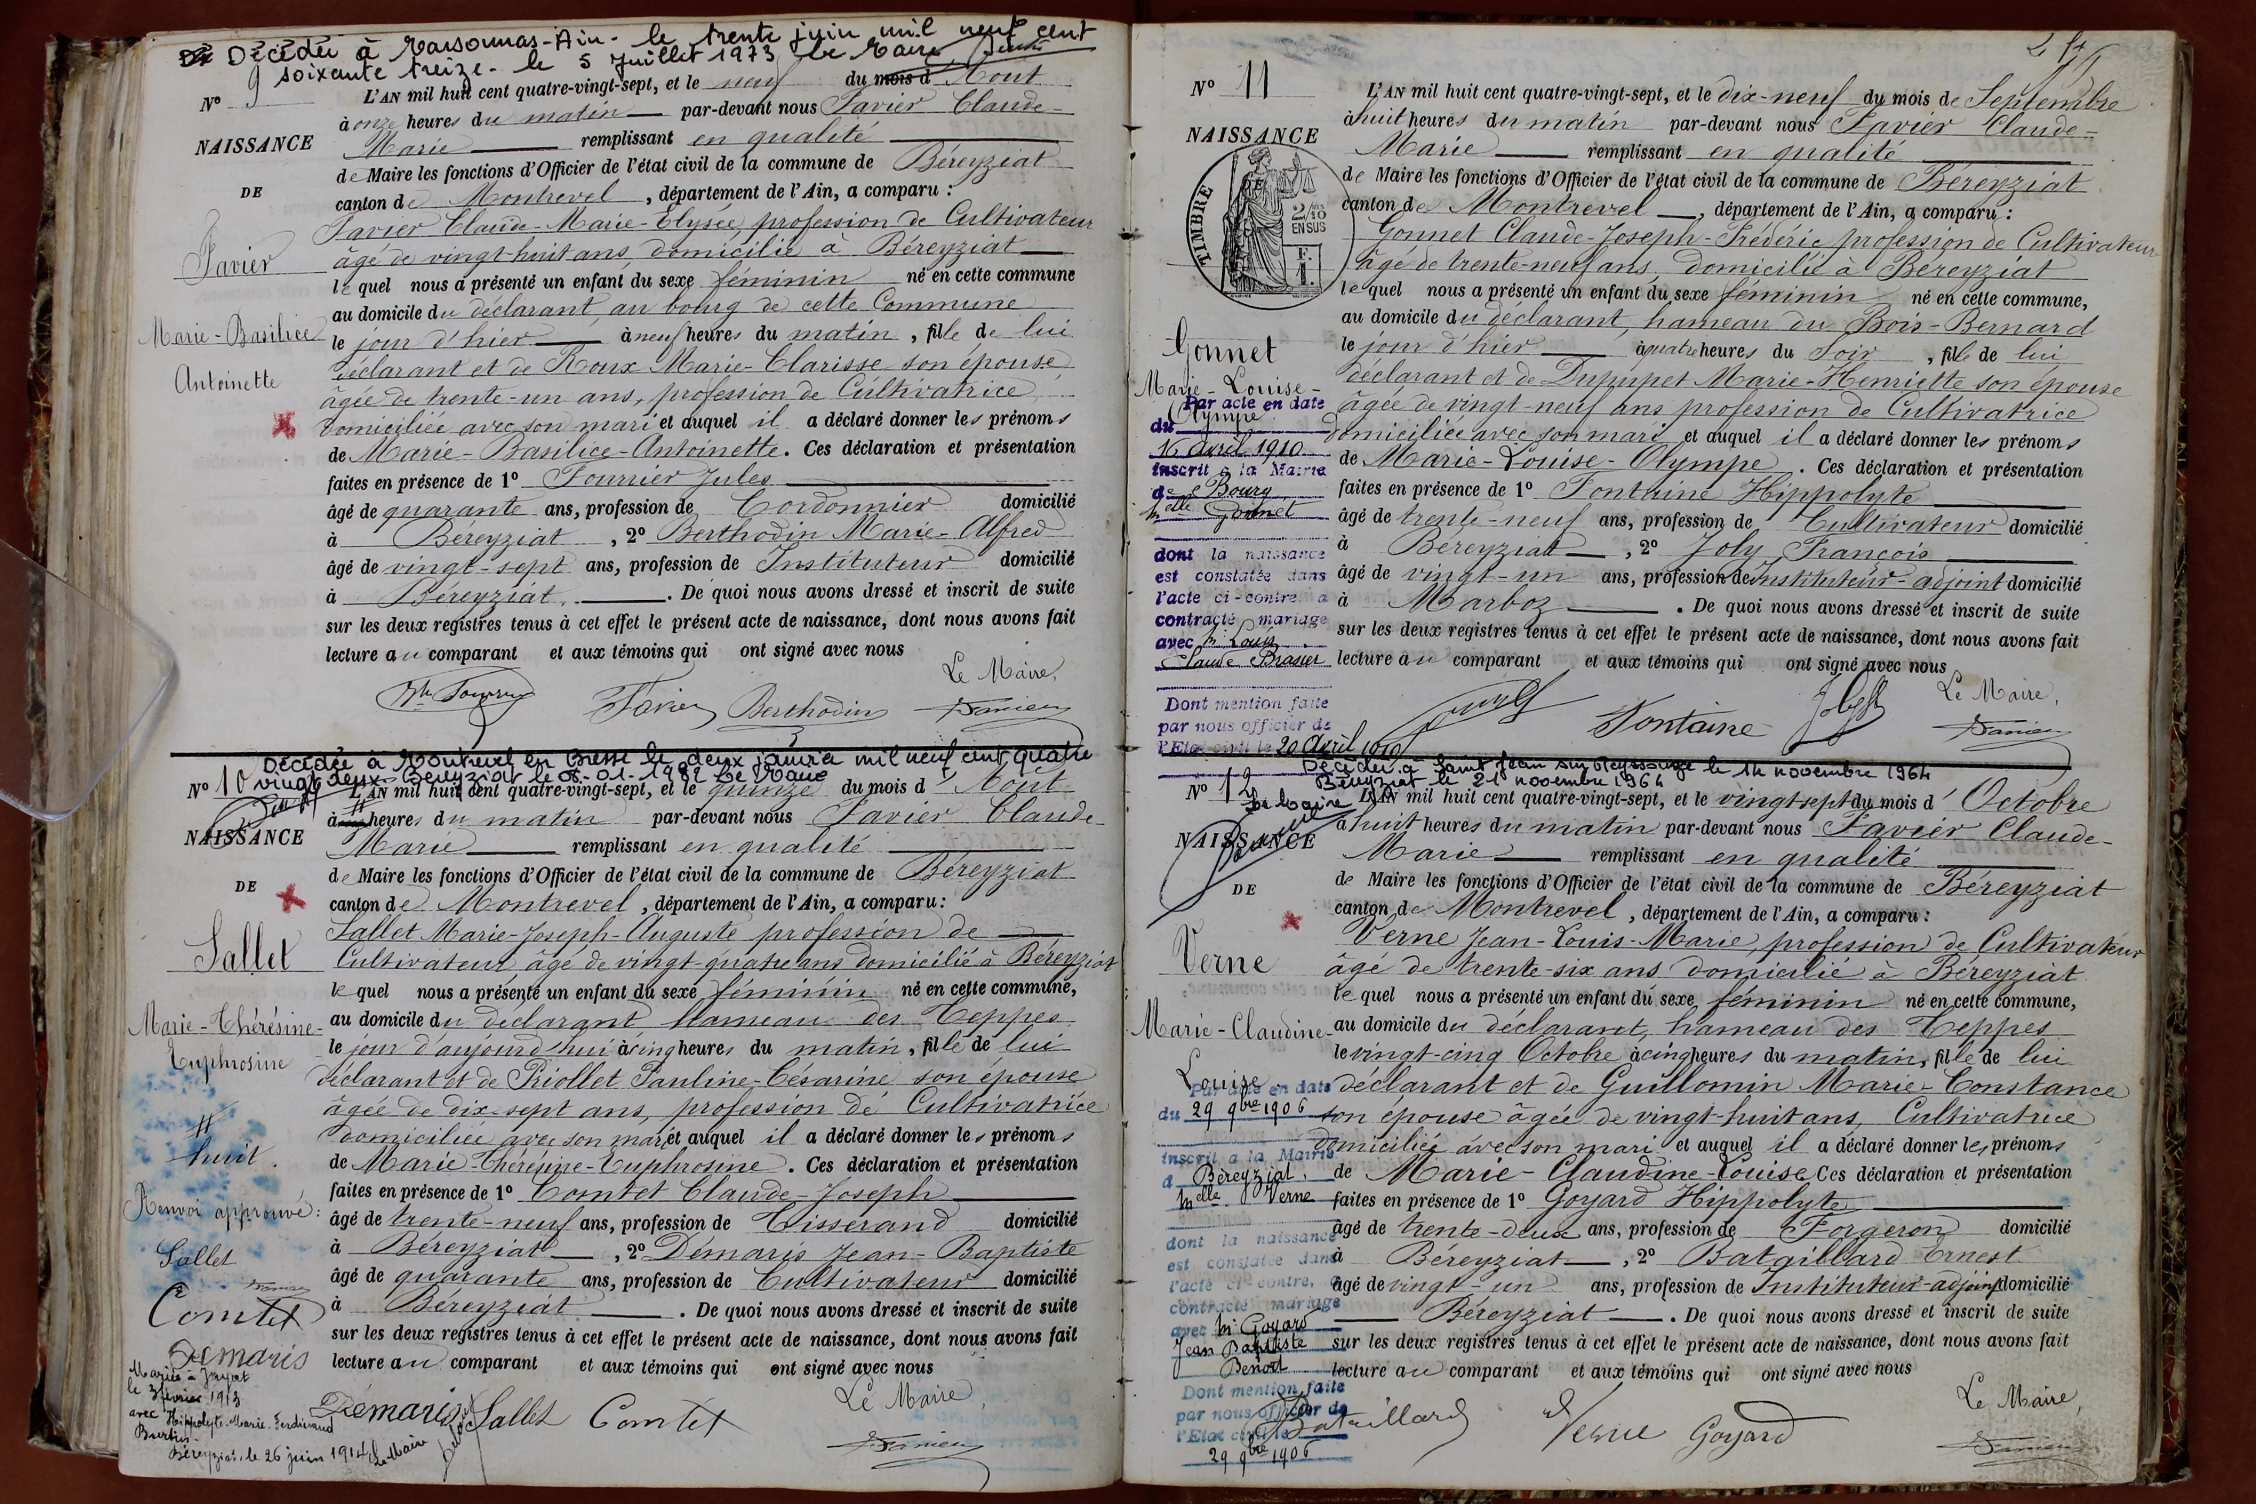 Décédée à Marsonnas-Ain- le trente juin mil neuf cent
soixante treize - le 5 Juillet 1973 le Maire
N° 9
L'AN mil huit cent quatre-vingt-sept, et le neuf du mois d'Aout
à onze heures du matin par-devant nous Favier Claude-
NAISSANCE
Marie remplissant en qualité
de Maire les fonctions d'Officier de l'état civil de la commune de Béreyziat
DE
canton de Montrevel, département de l'Ain, a comparu :
Favier Claude-Marie-Elysée, profession de Cultivateur
Favier
âgé de vingt-huit ans, domicilié à Béreyziat
lequel nous a présenté un enfant du sexe féminin né en cette commune
au domicile du déclarant, au bourg de cette Commune
Marie-Basilice
le jour d'hier à neuf heures du matin, fille de lui
Antoinette
déclarant et de Roux Marie-Clarisse son épouse
âgée de trente-un ans, profession de Cultivatrice
domiciliée avec son mari et auquel il a déclaré donner les prénoms
de Marie-Basilice-Antoinette. Ces déclaration et présentation
faites en présence de 1° Fournier Jules
âgé de quarante ans, profession de Cordonnier domicilié
à Béreyziat, 2° Berthodin Marie-Alfred
âgé de vingt-sept ans, profession de Instituteur domicilié
à Béreyziat. De quoi nous avons dressé et inscrit de suite
sur les deux registres tenus à cet effet le présent acte de naissance, dont nous avons fait
lecture au comparant et aux témoins qui ont signé avec nous
Le Maire,
Favier Berthodin
Décédée à Montrevel en Bresse le deux janvier mil neuf cent quatre
vingt deux - Béreyziat le 08-01-1982 Le Maire
N° 10
L'AN mil huit cent quatre-vingt-sept, et le quinze du mois d'Août
à heures du matin par-devant nous Favier Claude-
NAISSANCE
Marie remplissant en qualité
de Maire les fonctions d'Officier de l'état civil de la commune de Béreyziat
DE
canton de Montrevel, département de l'Ain, a comparu :
Sallet Marie-Joseph-Auguste profession de
Sallet
Cultivateur âgé de vingt-quatre ans domicilié à Béreyziat
lequel nous a présenté un enfant du sexe féminin né en cette commune,
Marie-Thérésine-
au domicile du déclarant hameau des Teppes
Euphrosine
le jour d'aujourd'hui à cinq heures du matin, fille de lui
déclarant et de Priollet Pauline-Césarine son épouse
âgée de dix-sept ans, profession de Cultivatrice
domiciliée avec son mari et auquel il a déclaré donner les prénoms
huit.
de Marie-Thérésine-Euphrosine. Ces déclaration et présentation
faites en présence de 1° Comtet Claude-Joseph
Renvoi approuvé :
âgé de trente-neuf ans, profession de Tisserand domicilié
Sallet
à Béreyziat, 2° Démaris Jean-Baptiste
âgé de quarante ans, profession de Cultivateur domicilié
Comtet
à Béreyziat. De quoi nous avons dressé et inscrit de suite
sur les deux registres tenus à cet effet le présent acte de naissance, dont nous avons fait
Démaris
lecture au comparant et aux témoins qui ont signé avec nous
Mariée à Jayat
le 3 février 1913
avec Hippolyte-Marie-Ferdinand
Burtin
Béreyziat, le 26 juin 1914, Le Maire
Le Maire,
Démaris Sallet Comtet
N° 11
L'AN mil huit cent quatre-vingt-sept, et le dix-neuf du mois de Septembre
à huit heures du matin par-devant nous Favier Claude-
NAISSANCE
Marie remplissant en qualité
de Maire les fonctions d'Officier de l'état civil de la commune de Béreyziat
TIMBRE
2/10 EN SUS
F. 1.
canton de Montrevel, département de l'Ain, a comparu :
Gonnet Claude-Joseph-Frédéric profession de Cultivateur
âgé de trente-neuf ans, domicilié à Béreyziat
lequel nous a présenté un enfant du sexe féminin né en cette commune,
au domicile du déclarant, hameau du Bois-Bernard
Gonnet
le jour d'hier à quatre heures du soir, fille de lui
Marie-Louise-
Olympe
déclarant et de Dupupet Marie-Henriette son épouse
âgée de vingt-neuf ans profession de Cultivatrice
domiciliée avec son mari et auquel il a déclaré donner les prénoms
de Marie-Louise-Olympe. Ces déclaration et présentation
faites en présence de 1° Fontaine Hippolyte
âgé de trente-neuf ans, profession de Cultivateur domicilié
à Béreyziat, 2° Joly François
âgé de vingt-un ans, profession de Instituteur-adjoint domicilié
à Marboz. De quoi nous avons dressé et inscrit de suite
sur les deux registres tenus à cet effet le présent acte de naissance, dont nous avons fait
lecture au comparant et aux témoins qui ont signé avec nous
Par acte en date
du
16 Avril 1910
inscrit à la Mairie
de Bourg
Melle Gonnet
dont la naissance
est constatée dans
l'acte ci-contre a
contracté mariage
avec M. Louis
Claude Brasier
Dont mention faite
par nous officier de
l'Etat civil le 20 Avril 1910
Le Maire,
Fontaine
Décédée à Saint Jean sur Reyssouze le 14 novembre 1964
Béreyziat le 21 novembre 1964
Le Maire
N° 12
L'AN mil huit cent quatre-vingt-sept, et le vingt-sept du mois d'Octobre
à huit heures du matin par-devant nous Favier Claude-
NAISSANCE
Marie remplissant en qualité
DE
de Maire les fonctions d'Officier de l'état civil de la commune de Béreyziat
canton de Montrevel, département de l'Ain, a comparu :
Verne Jean-Louis-Marie, profession de Cultivateur
Verne
âgé de trente-six ans domicilié à Béreyziat
lequel nous a présenté un enfant du sexe féminin né en cette commune,
Marie-Claudine-
Louise
au domicile du déclarant, hameau des Teppes
le vingt-cinq Octobre à cinq heures du matin, fille de lui
déclarant et de Guillomin Marie-Constance
son épouse âgée de vingt-huit ans, Cultivatrice
domiciliée avec son mari et auquel il a déclaré donner les prénoms
de Marie-Claudine-Louise Ces déclaration et présentation
faites en présence de 1° Goyard Hippolyte
âgé de trente-deux ans, profession de Forgeron domicilié
à Béreyziat, 2° Bataillard Ernest
âgé de vingt-un ans, profession de Instituteur-adjoint domicilié
Béreyziat. De quoi nous avons dressé et inscrit de suite
sur les deux registres tenus à cet effet le présent acte de naissance, dont nous avons fait
lecture au comparant et aux témoins qui ont signé avec nous
Par acte en date
du 29 9bre 1906
inscrit à la Mairie
d Béreyziat.
Melle Verne
dont la naissance
est constatée dans
l'acte ci-contre, a
contracté mariage
avec M. Goyard
Jean Baptiste
Benoit
Dont mention faite
par nous officier de
l'Etat civil le
29 9bre 1906
Le Maire,
Bataillard Verne Goyard